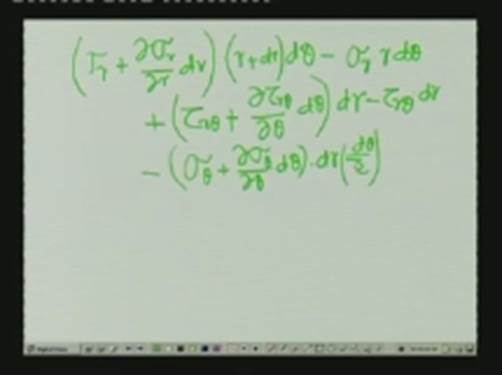 (σr + ∂σr/∂r dr) (r+dr) dθ − σr r dθ
+ (τrθ + ∂τrθ/∂θ dθ) dr − τrθ dr
− (σθ + ∂σθ/∂θ dθ) · dr (dθ/2)